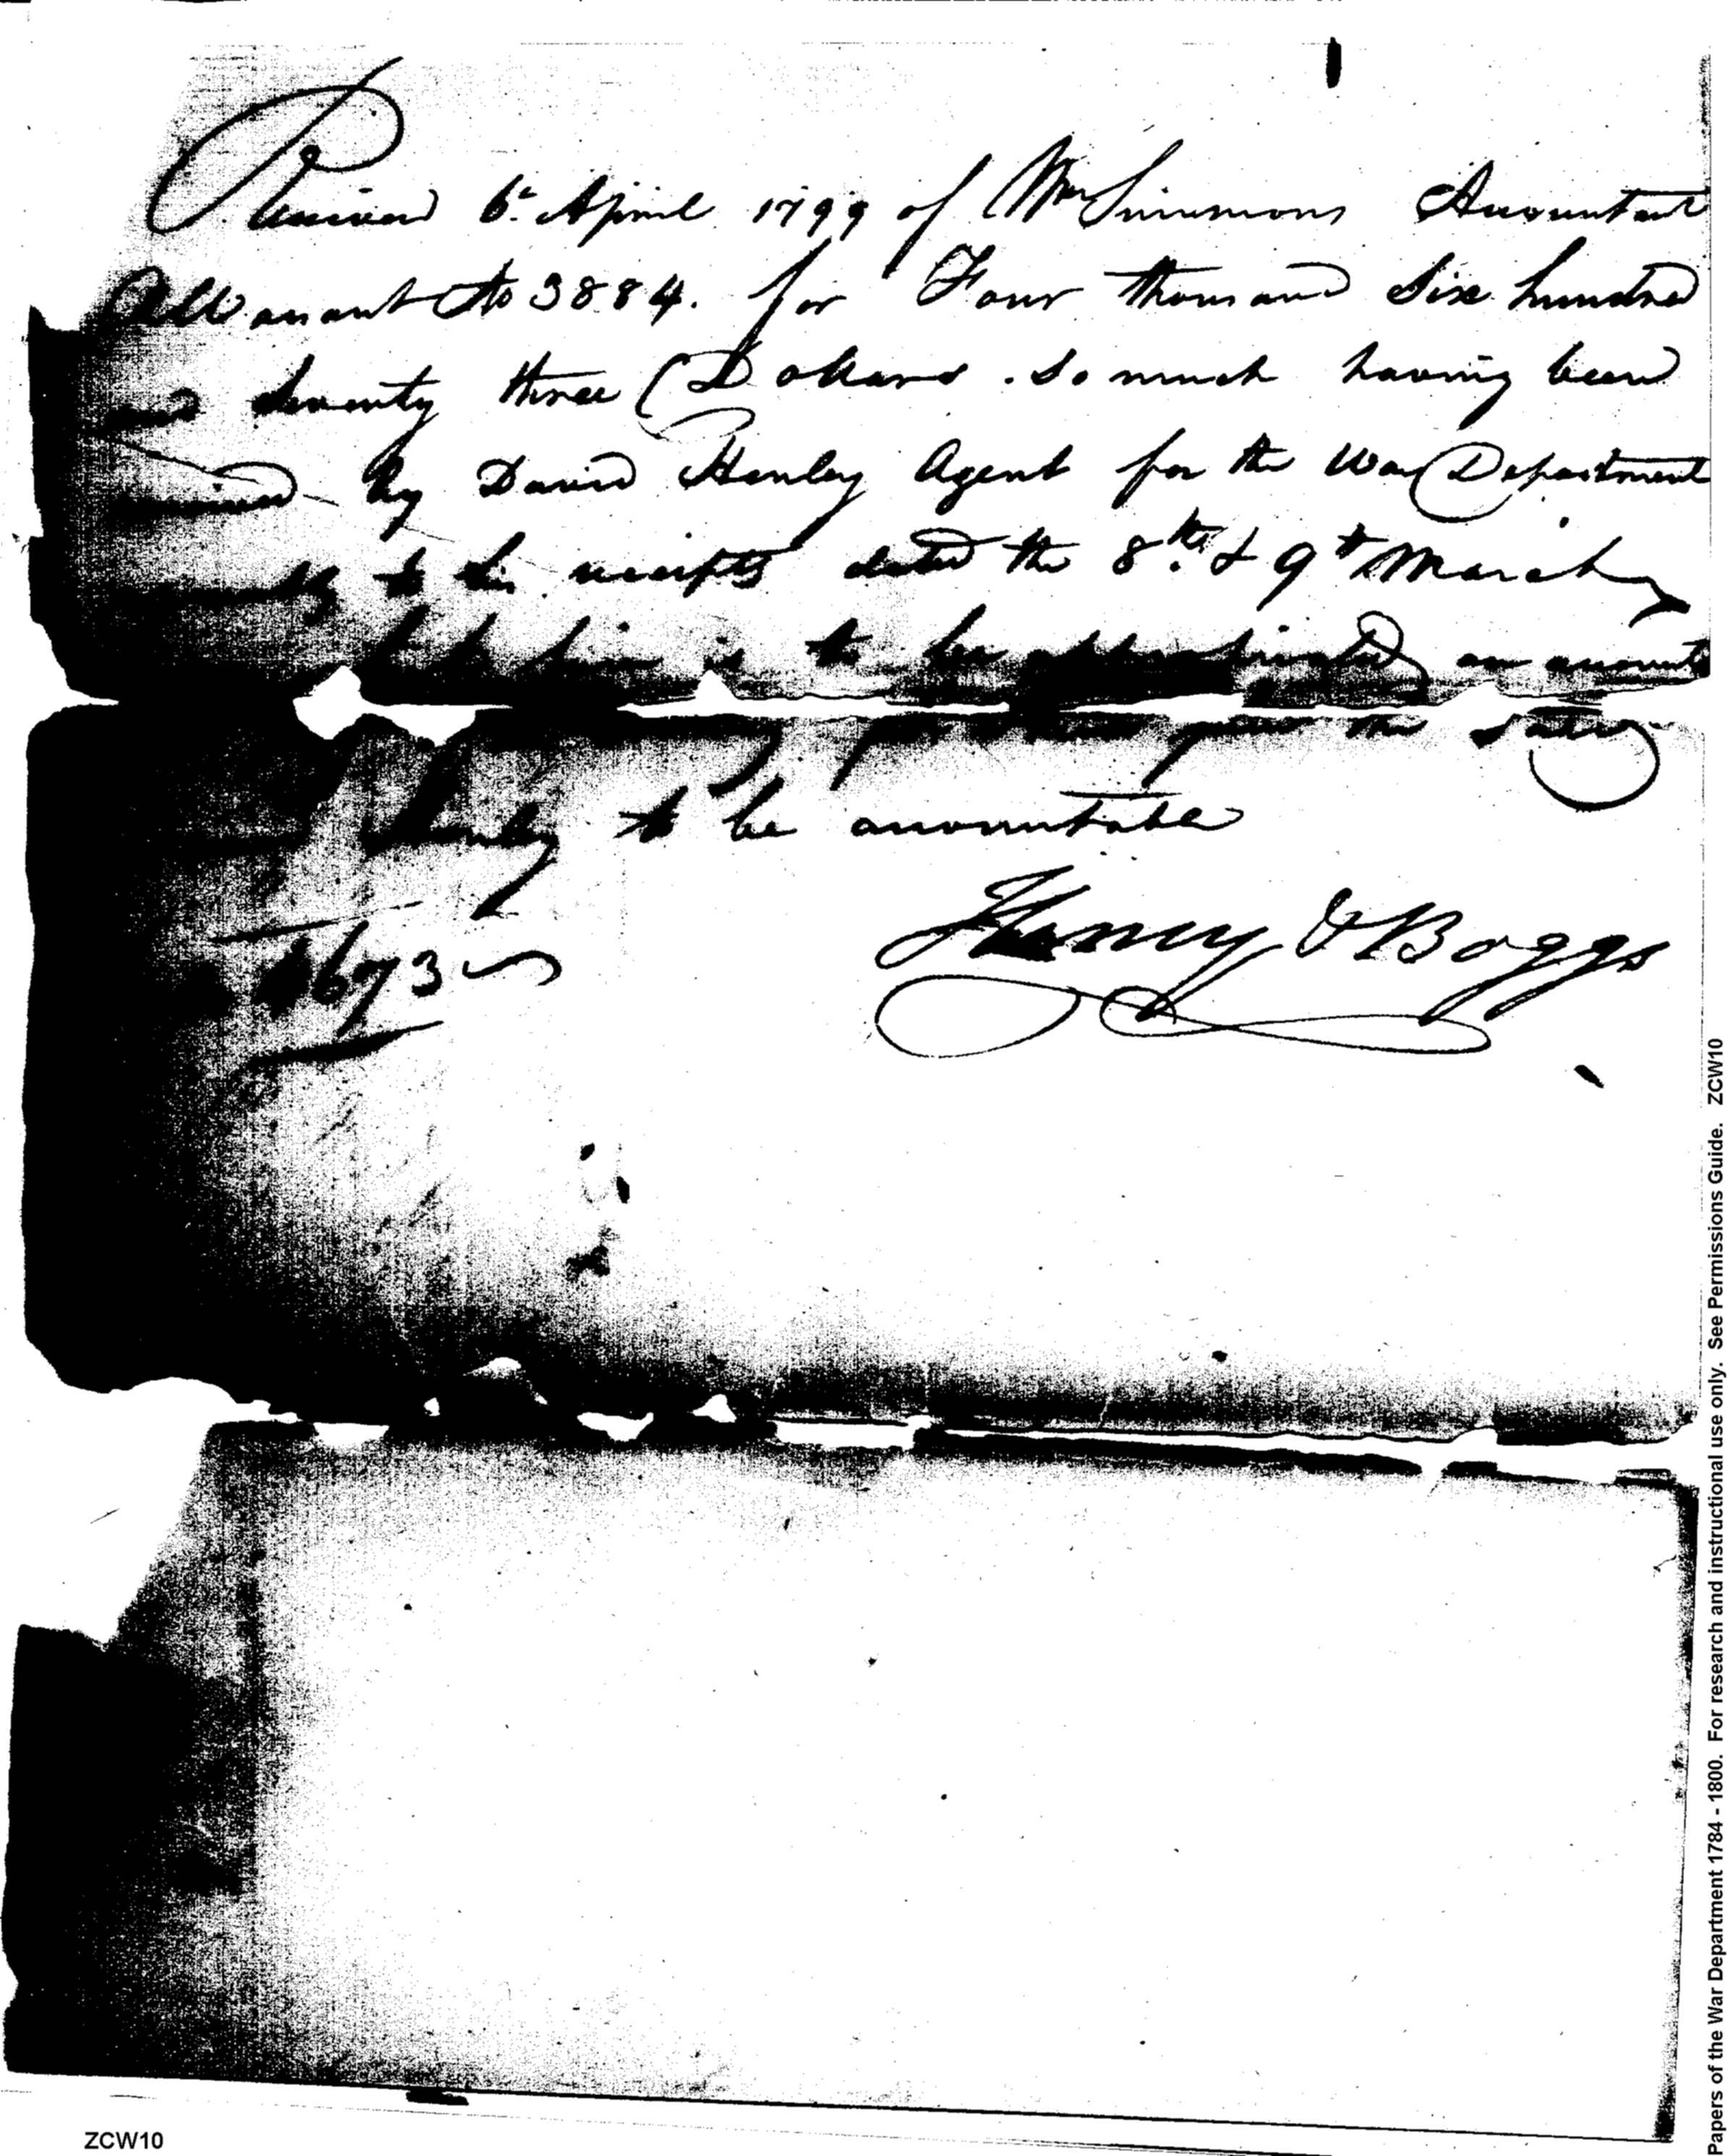 Received 6th April 1799 of Wm Simmons Accountant
a Warrant No 3884. for Four thousand Six hundred
and Seventy three Dollars. So much having been
received by David Henley Agent for the War Department
to his receipts dated the 8th & 9th March
him is to be appropriated on account
the said
Henley to be accountable
4673
Henry & Boggs
Papers of the War Department 1784 - 1800. For research and instructional use only. See Permissions Guide. ZCW10
ZCW10